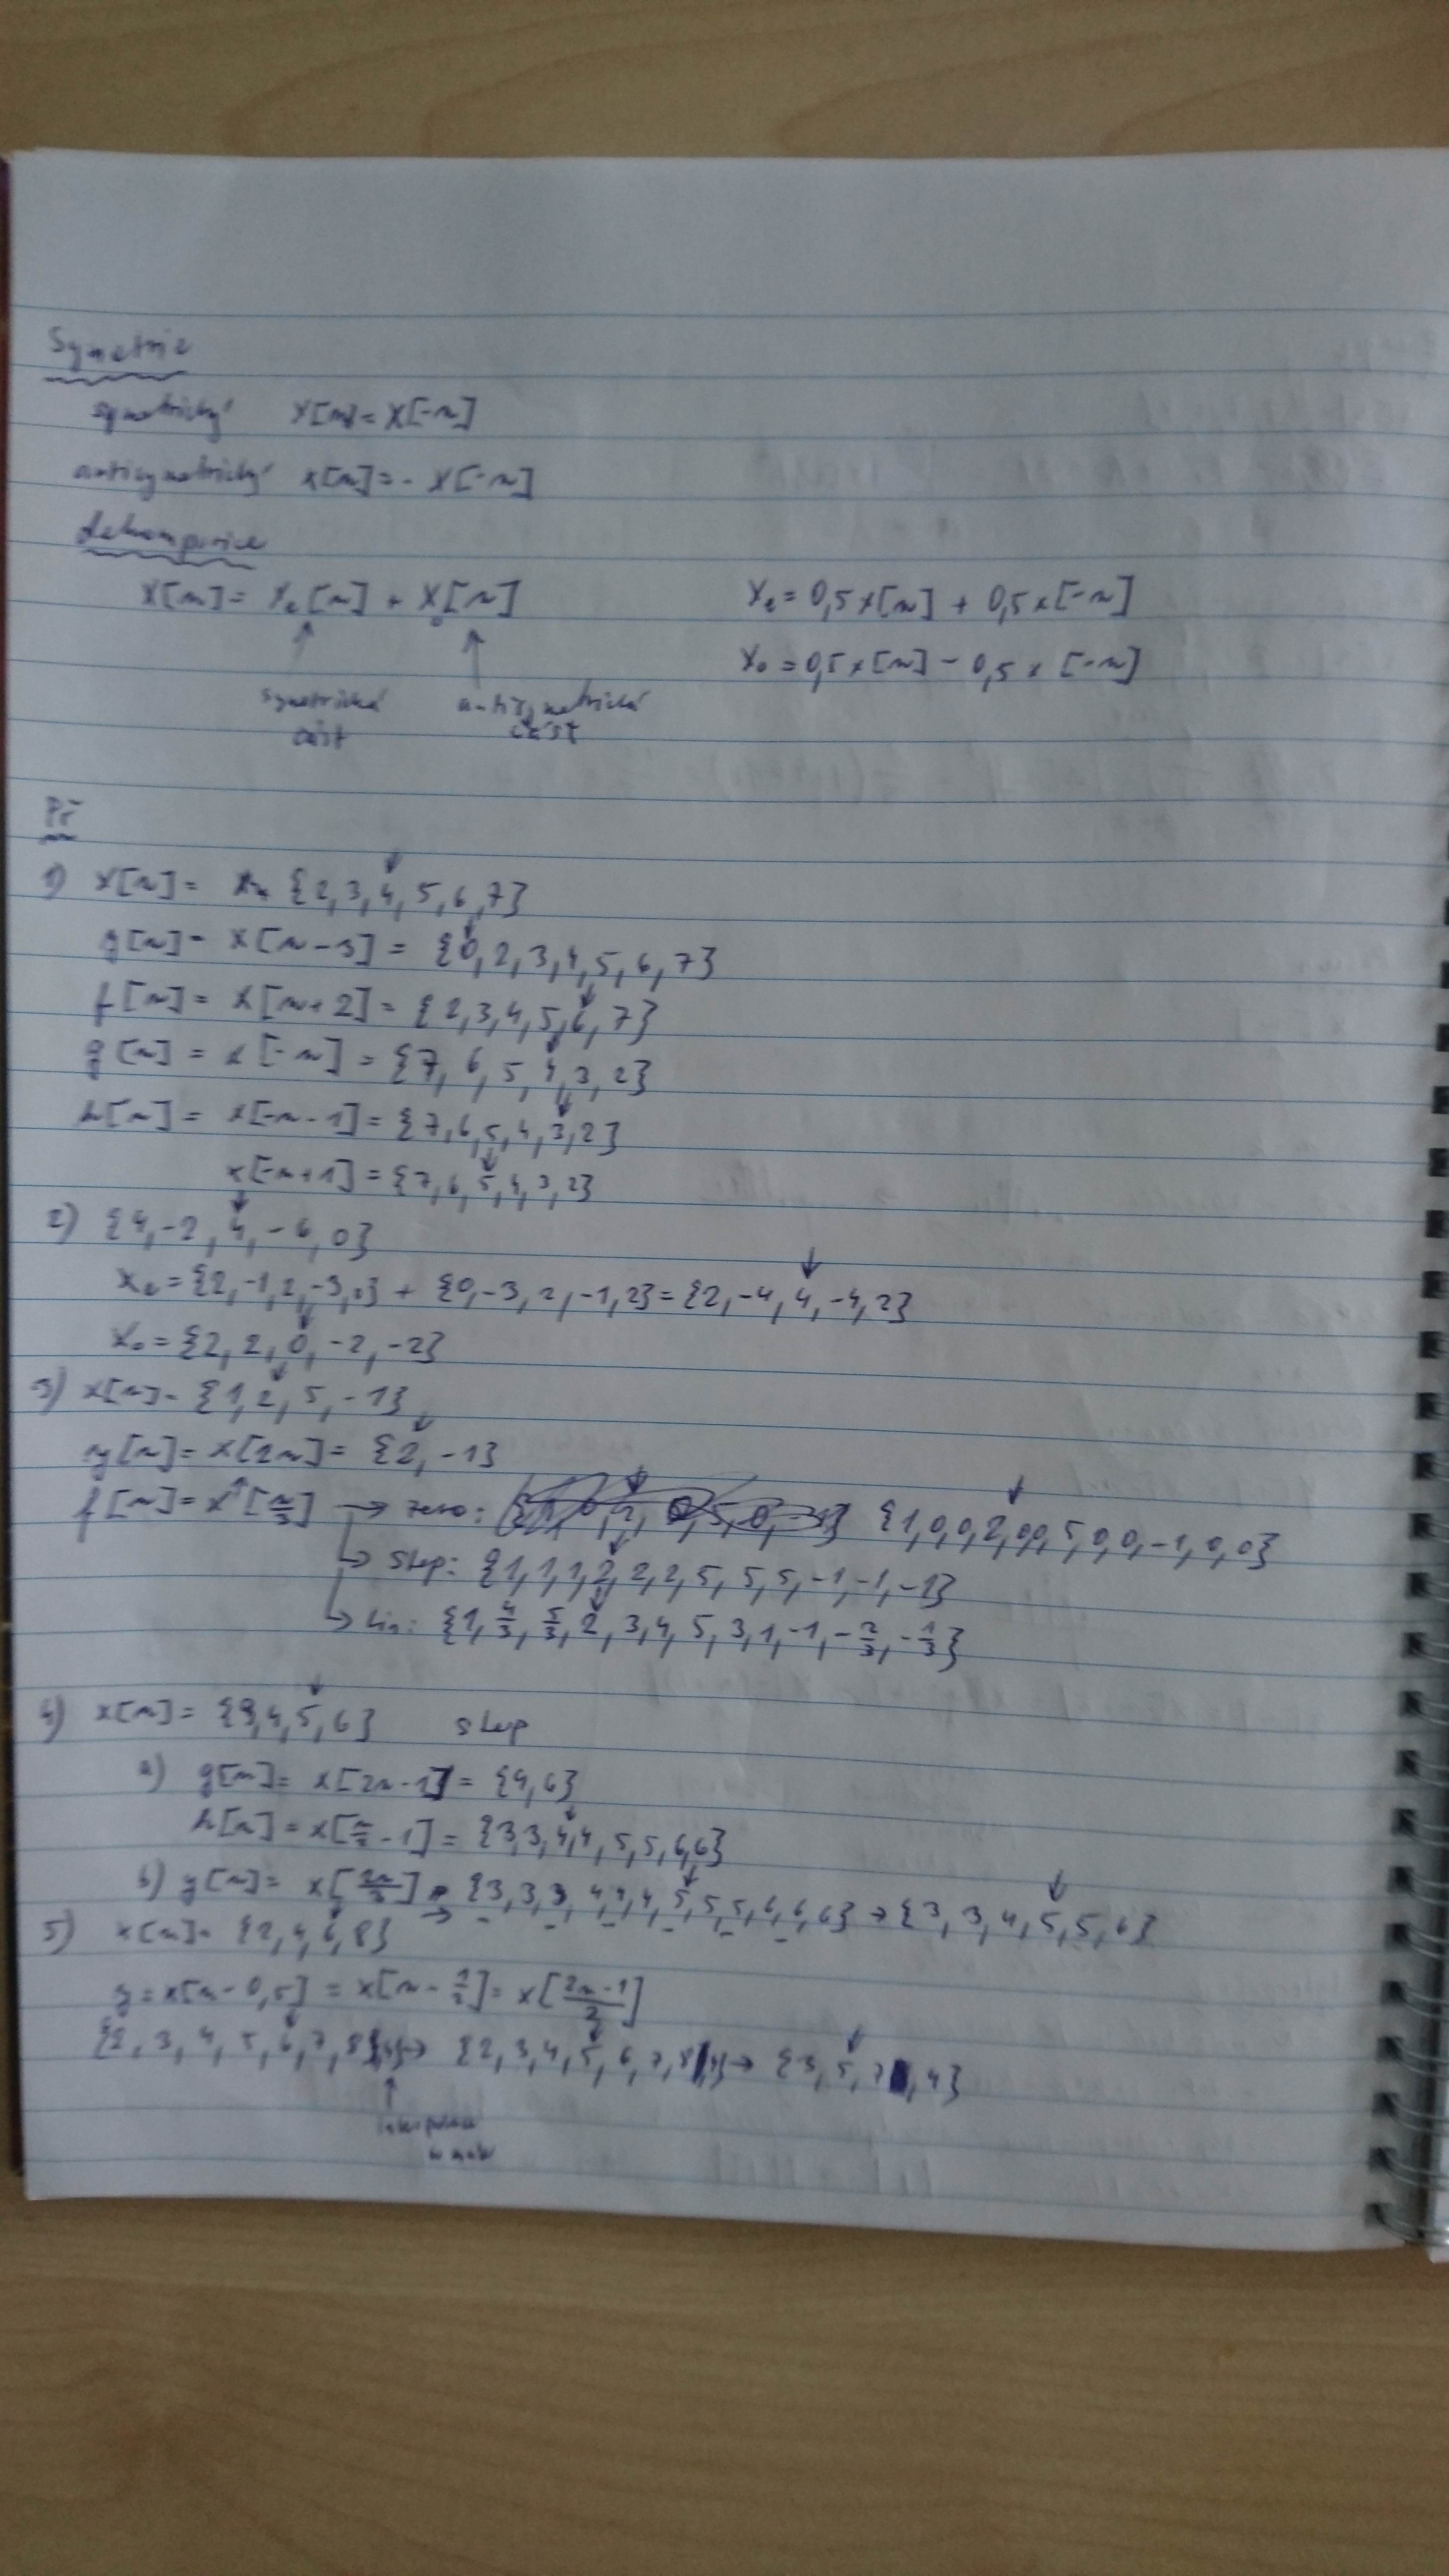 Symetrie
symetrický x[n] = x[-n]
antisymetrický x[n] = - x[-n]
dekompozice
x[n] = xe[n] + xo[n] xe = 0,5x[n] + 0,5x[-n]
↑ ↑ xo = 0,5x[n] - 0,5x[-n]
symetrická antisymetrická
část část
Př
1) x[n] = {2, 3, 4, 5, 6, 7}
x[n-3] = {0, 2, 3, 4, 5, 6, 7}
f[n] = x[n+2] = {2, 3, 4, 5, 6, 7}
g[n] = x[-n] = {7, 6, 5, 4, 3, 2}
h[n] = x[-n-1] = {7, 6, 5, 4, 3, 2}
x[-n+1] = {7, 6, 5, 4, 3, 2}
2) {4, -2, 4, -6, 0}
xe = {2, -1, 2, -3, 0} + {0, -3, 2, -1, 2} = {2, -4, 4, -4, 2}
xo = {2, 2, 0, -2, -2}
3) x[n] = {1, 2, 5, -1}
y[n] = x[2n] = {2, -1}
f[n] = x[n/3] → zero: {1, 0, 0, 2, 0, 0, 5, 0, 0, -1, 0, 0}
↳ step: {1, 1, 1, 2, 2, 2, 5, 5, 5, -1, -1, -1}
↳ lin: {1, 4/3, 5/3, 2, 3, 4, 5, 3, 1, -1, -2/3, -1/3}
4) x[n] = {3, 4, 5, 6} step
a) g[n] = x[2n-1] = {4, 6}
h[n] = x[n/2 - 1] = {3, 3, 4, 4, 5, 5, 6, 6}
b) y[n] = x[2n/3] → {3, 3, 3, 4, 4, 4, 5, 5, 5, 6, 6, 6} → {3, 3, 4, 5, 5, 6}
5) x[n] = {2, 4, 6, 8}
y = x[n-0,5] = x[n - 1/2] = x[(2n-1)/2]
{2, 3, 4, 5, 6, 7, 8, 4} → {2, 3, 4, 5, 6, 7, 8, 4} → {3, 5, 7, 4}
↑